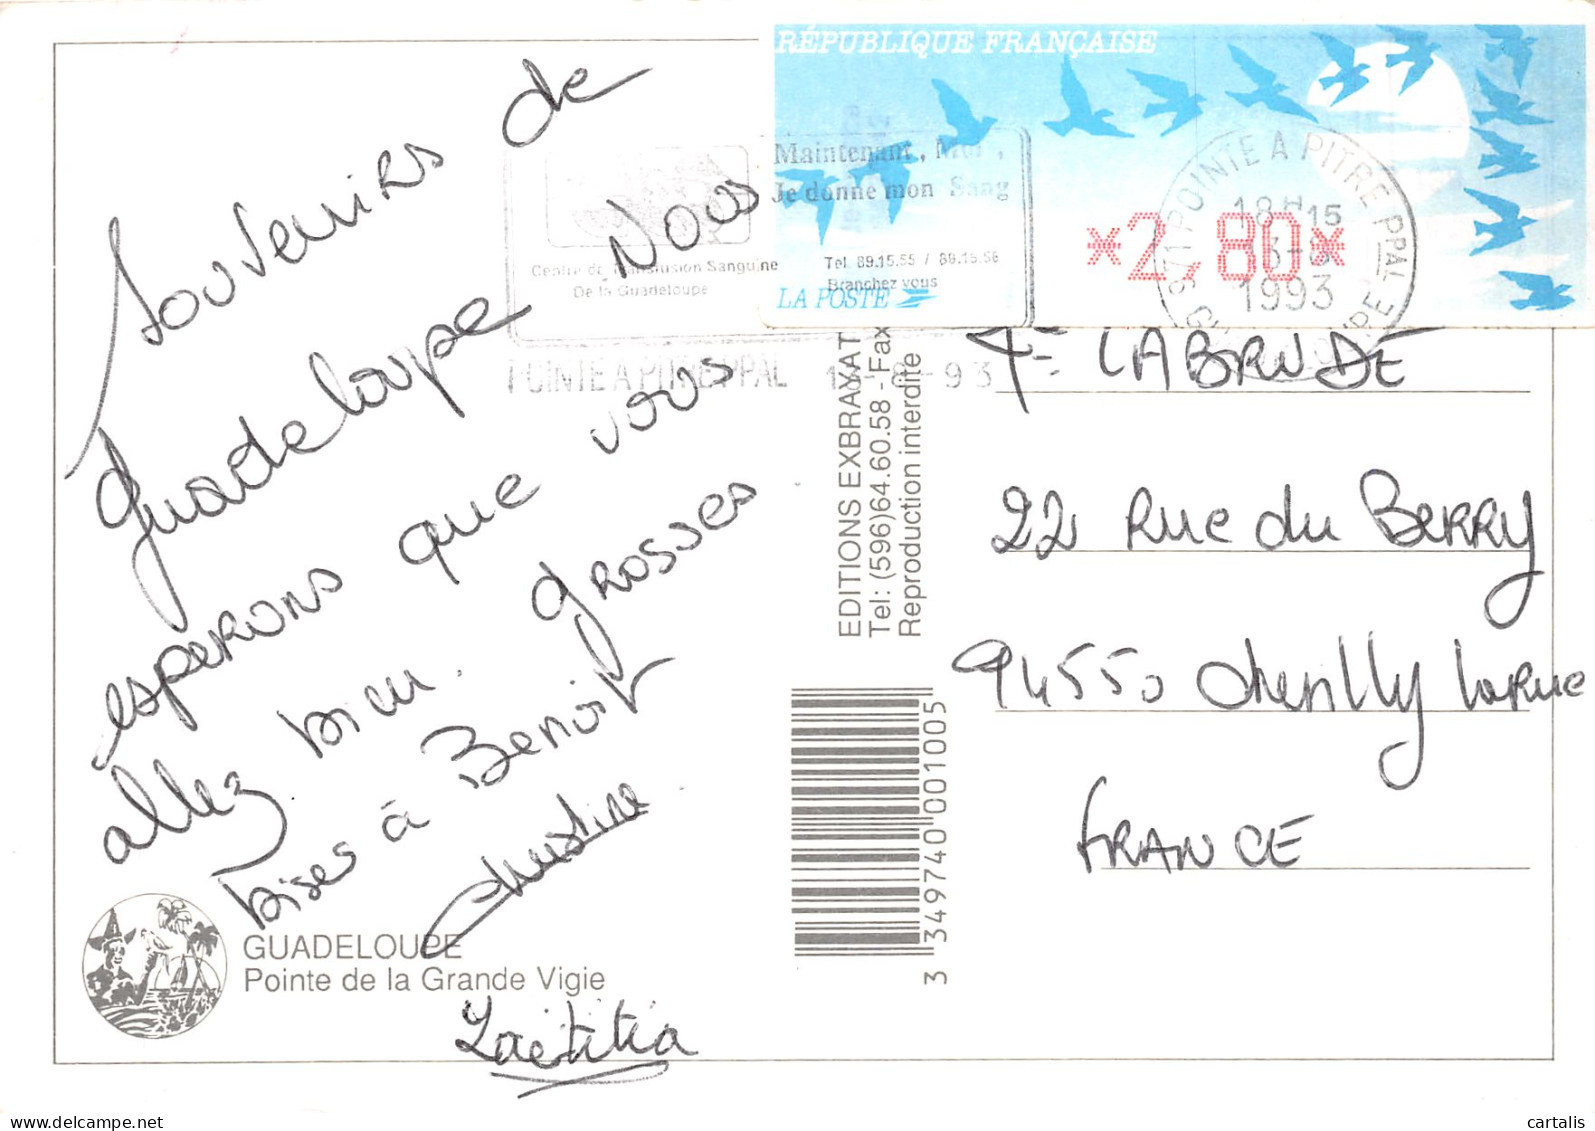 RÉPUBLIQUE FRANÇAISE
Maintenant, Moi,
Je donne mon Sang
Centre de Transfusion Sanguine
De la Guadeloupe
Tel 89.15.55 / 89.15.56
Branchez vous
LA POSTE
*2,80*
971 POINTE A PITRE PPAL
18H15
1993
GUADELOUPE
POINTE A PITRE PPAL
93
Souvenirs de
Guadeloupe Nous
esperons que vous
allez bien. Grosses
bises à Benoit
Christine
Laëtitia
GUADELOUPE
Pointe de la Grande Vigie
EDITIONS EXBRAYAT
Tel: (596)64.60.58 - Fax
Reproduction interdite
3 349740 001005
LABRUDE
22 Rue du Berry
94550 Chevilly Larue
FRANCE
cartalis
delcampe.net